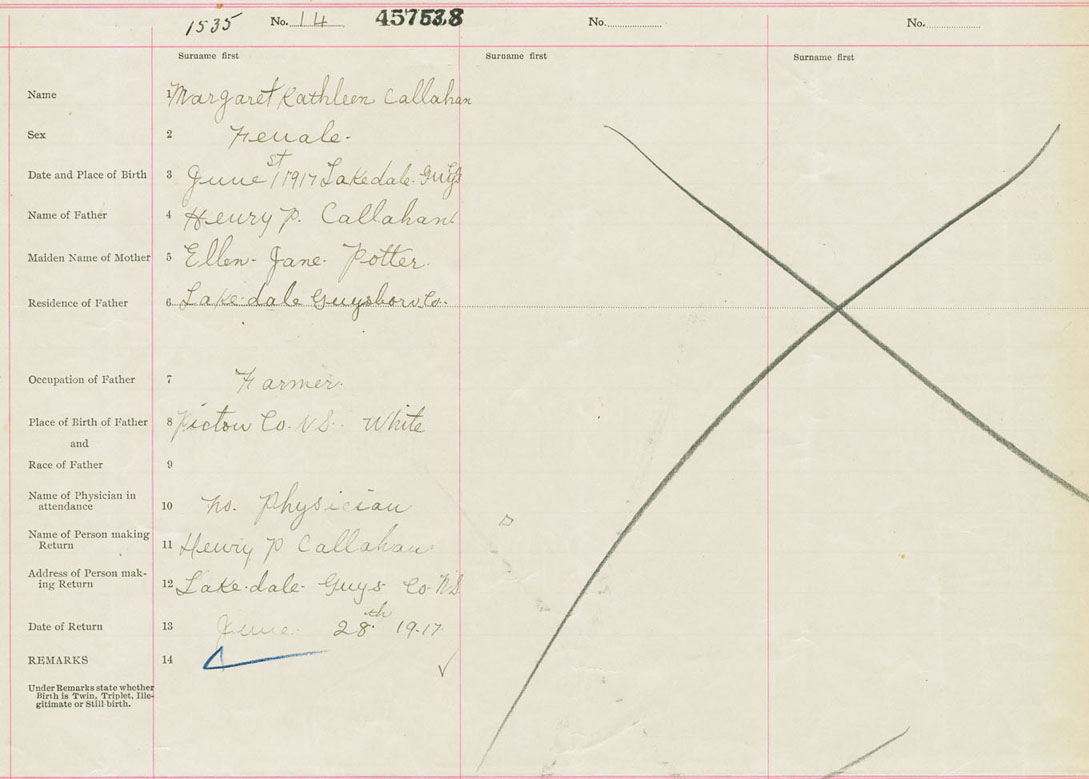 1535 No. 14 457538 No. No.
Surname first Surname first Surname first
Name 1 Margaret Kathleen Callahan
Sex 2 Female.
Date and Place of Birth 3 June 1st 1917 Lakedale. Guys
Name of Father 4 Henry P. Callahan
Maiden Name of Mother 5 Ellen. Jane. Potter.
Residence of Father 6 Lakedale Guysboro Co.
Occupation of Father 7 Farmer.
Place of Birth of Father 8 Pictou Co. N.S. White
and
Race of Father 9
Name of Physician in
attendance 10 no. Physician
Name of Person making
Return 11 Henry P Callahan
Address of Person mak-
ing Return 12 Lake.dale. Guys Co. N.S
Date of Return 13 June. 28th 1917.
REMARKS 14
Under Remarks state whether
Birth is Twin, Triplet, Ille-
gitimate or Still-birth.